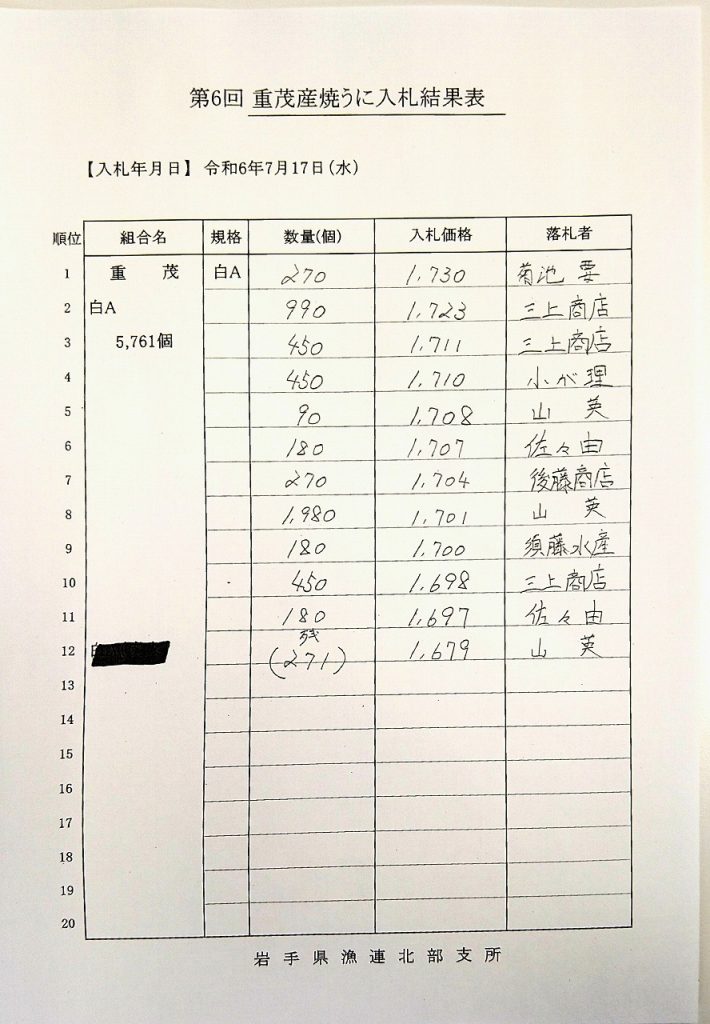 第6回 重茂産焼うに入札結果表
【入札年月日】 令和6年7月17日(水)
順位 組合名 規格 数量(個) 入札価格 落札者
1 重 茂 白A 270 1,730 菊池 要
2 白A 990 1,723 三上商店
3 5,761個 450 1,711 三上商店
4 450 1,710 小が理
5 90 1,708 山 英
6 180 1,707 佐々由
7 270 1,704 後藤商店
8 1,980 1,701 山 英
9 180 1,700 須藤水産
10 450 1,698 三上商店
11 180 1,697 佐々由
残
12 (271) 1,679 山 英
13
14
15
16
17
18
19
20
岩手県漁連北部支所